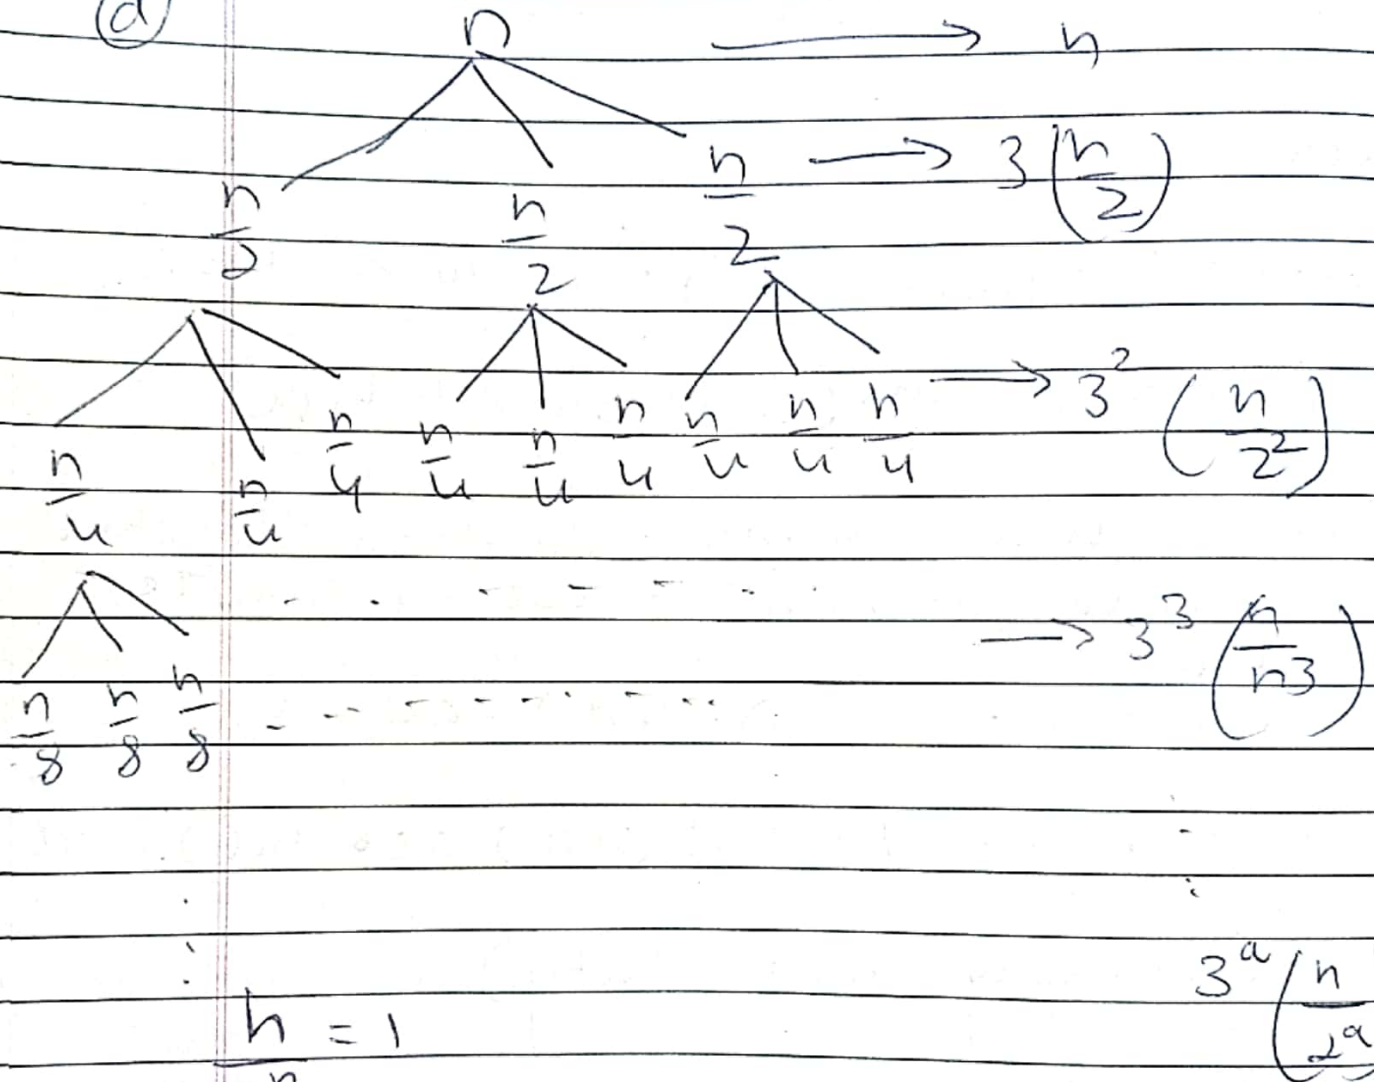 (d) n ⟶ n
n/2 n/2 n/2 ⟶ 3(n/2)
n/4 n/4 n/4 n/4 n/4 n/4 n/4 n/4 n/4 ⟶ 3²(n/2²)
n/8 n/8 n/8 ⟶ 3³(n/n3)
3^a(n/2^a)
n/ = 1